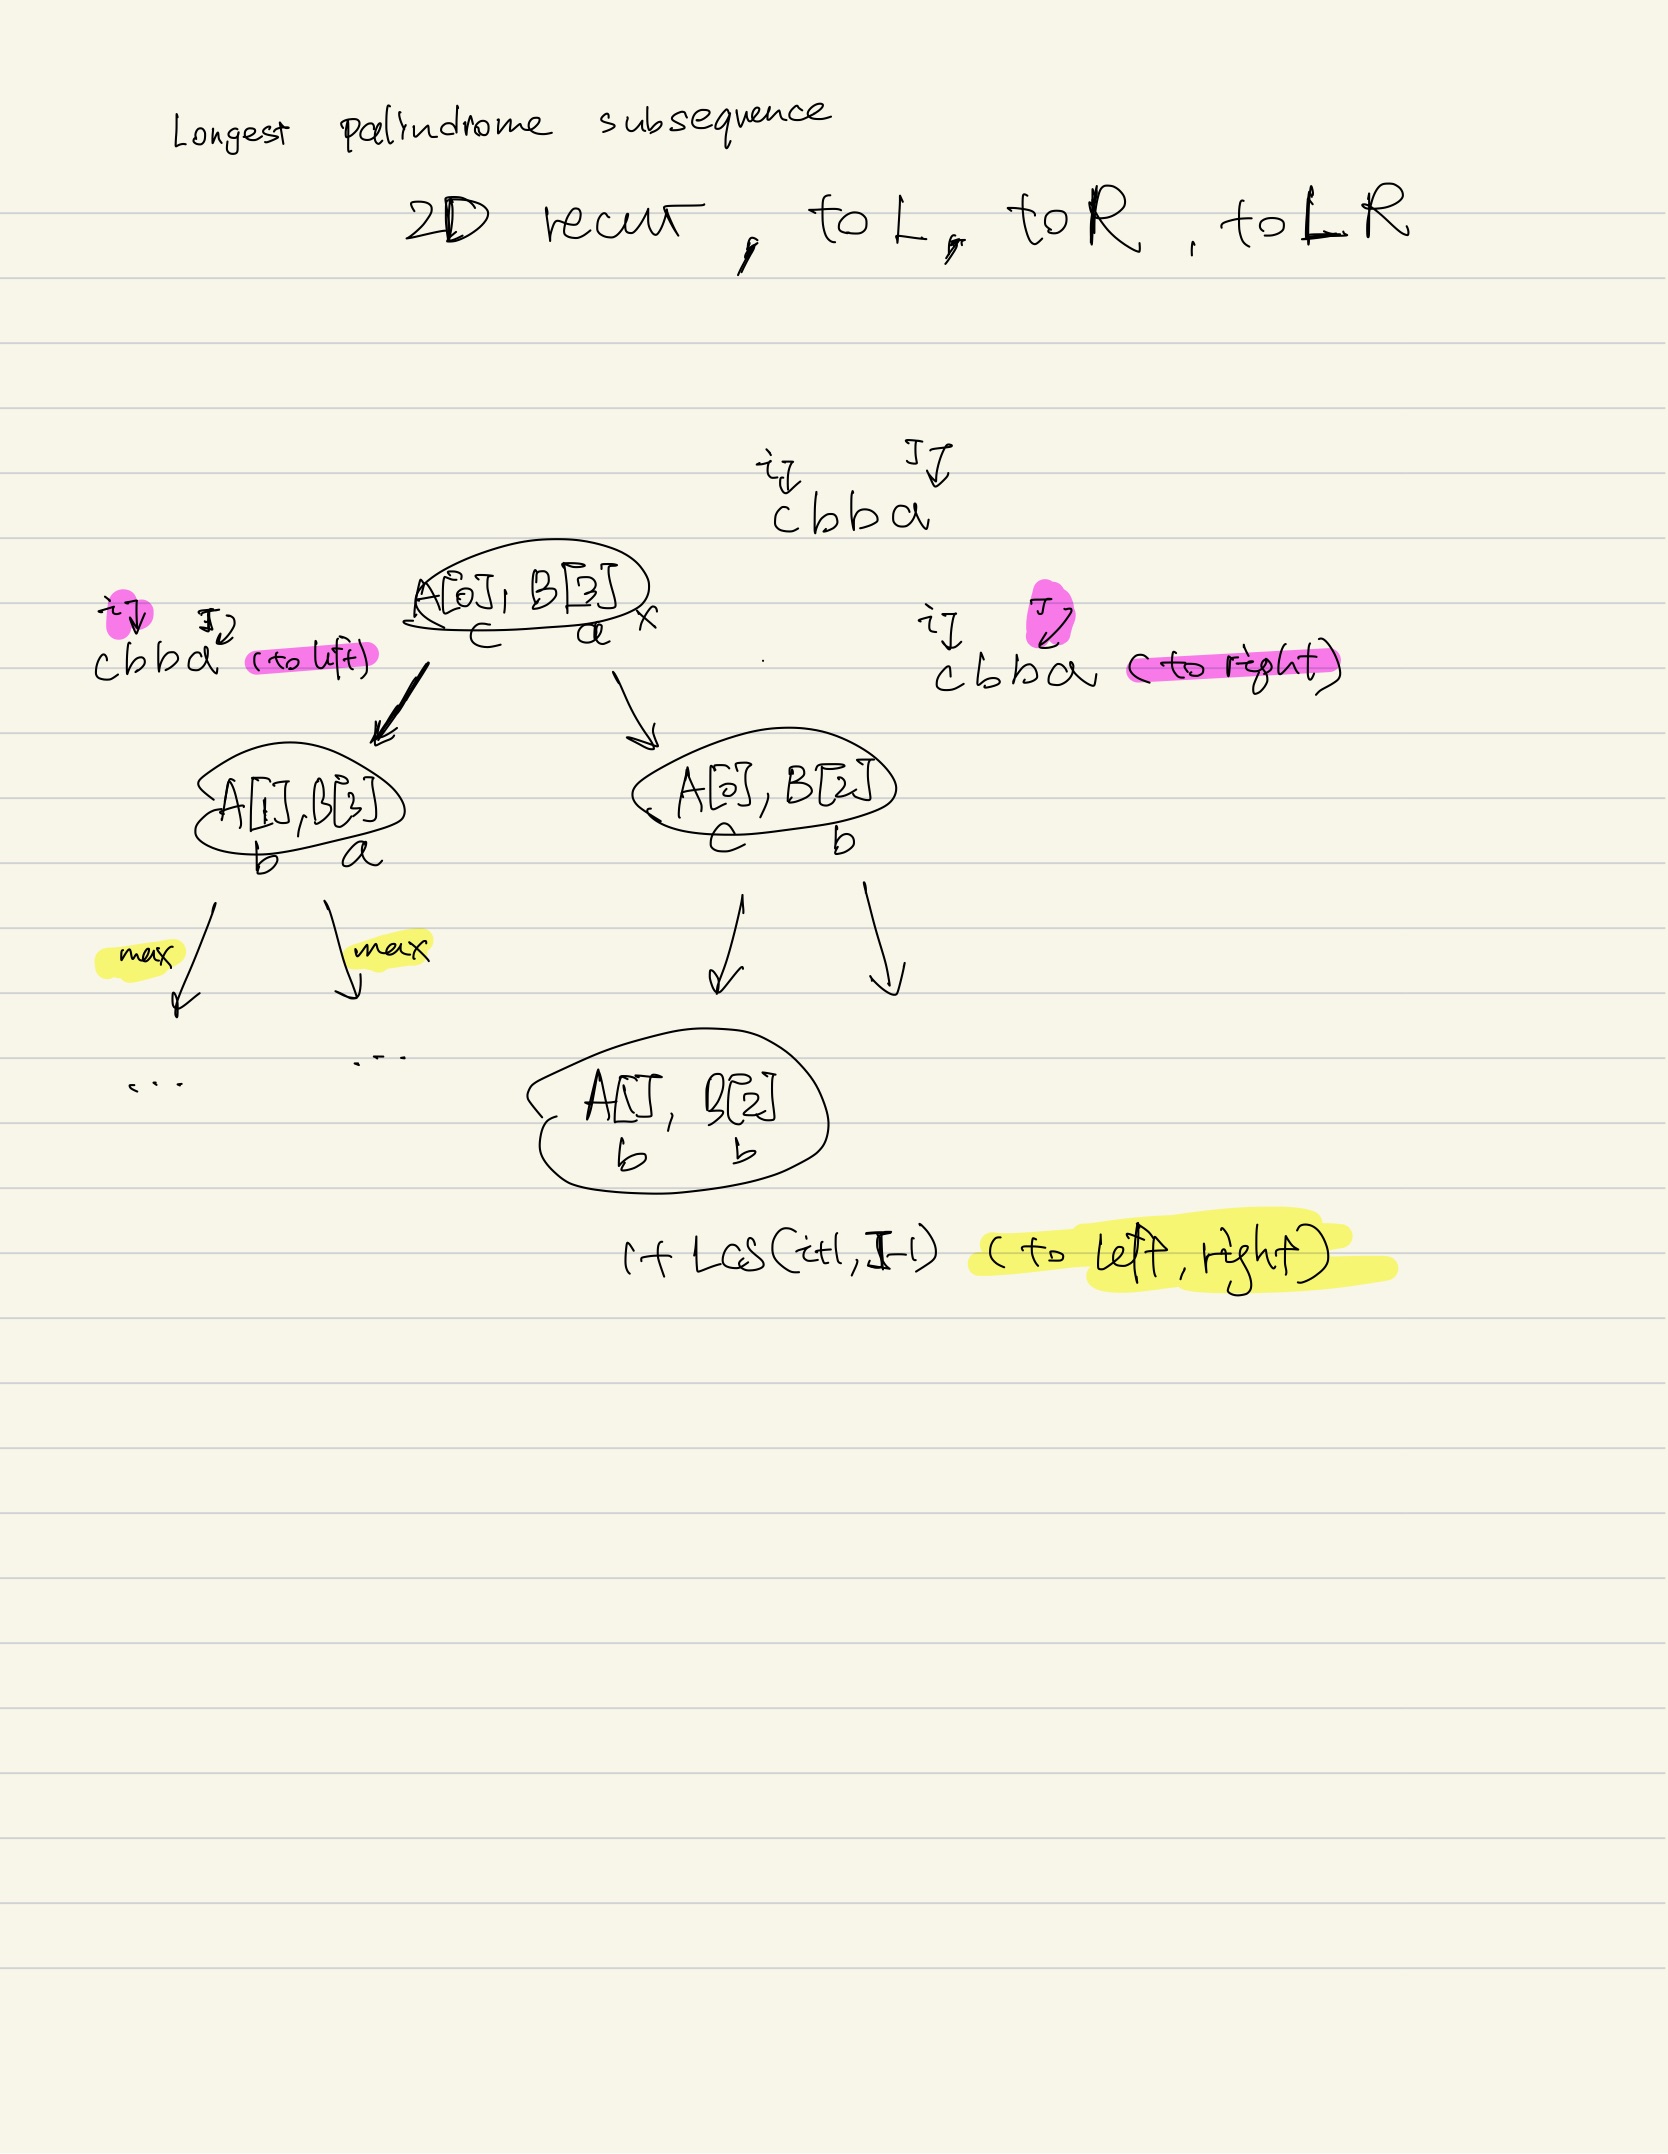 Longest palindrome subsequence
2D recur, to L, to R, to LR
i J
cbba
A[0], B[3] x
c a
i J
cbba (to left)
i J
cbba (to right)
A[1], B[3]
b a
A[0], B[2]
c b
max max
... ...
A[1], B[2]
b b
1+ LCS(i+1, J-1) (to left, right)